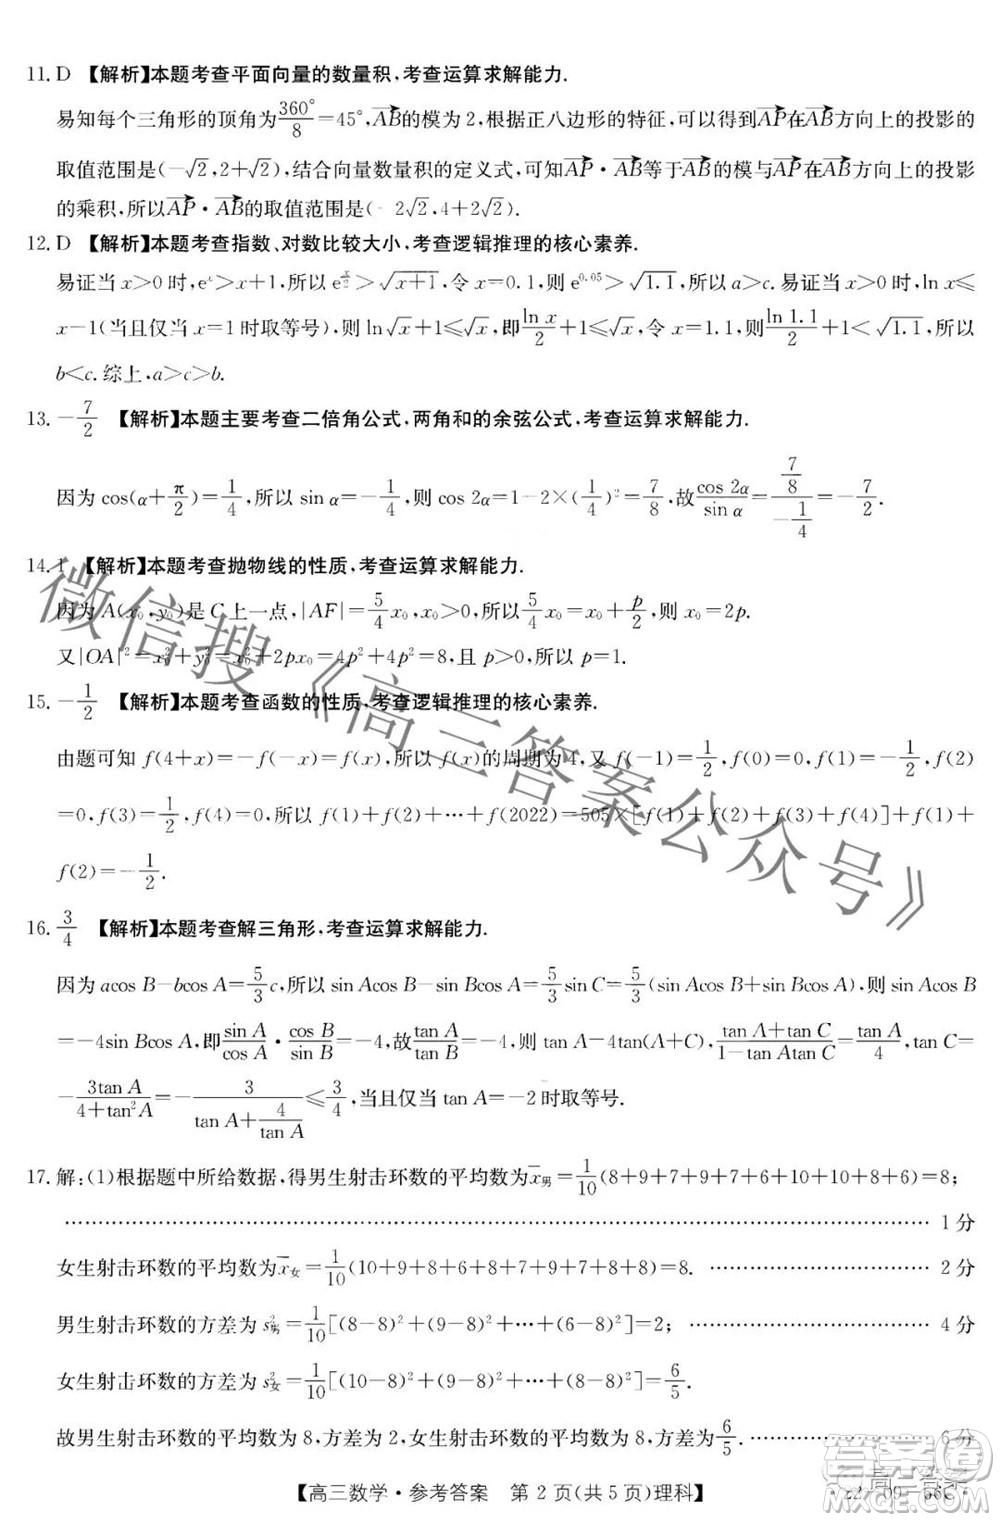 11. D 【解析】本题考查平面向量的数量积,考查运算求解能力.
易知每个三角形的顶角为360°/8=45°,AB的模为2,根据正八边形的特征,可以得到AP在AB方向上的投影的
取值范围是(-√2,2+√2),结合向量数量积的定义式,可知AP·AB等于AB的模与AP在AB方向上的投影
的乘积,所以AP·AB的取值范围是(-2√2,4+2√2).
12. D 【解析】本题考查指数、对数比较大小,考查逻辑推理的核心素养.
易证当x>0时,eˣ>x+1,所以e^(x/2)>√(x+1),令x=0.1,则e^0.05>√1.1,所以a>c.易证当x>0时,ln x≤
x-1(当且仅当x=1时取等号),则ln√x+1≤√x,即ln x/2+1≤√x,令x=1.1,则ln 1.1/2+1<√1.1,所以
b<c.综上,a>c>b.
13. -7/2 【解析】本题主要考查二倍角公式,两角和的余弦公式,考查运算求解能力.
因为cos(α+π/2)=1/4,所以sin α=-1/4,则cos 2α=1-2×(1/4)²=7/8,故cos 2α/sin α=(7/8)/(-1/4)=-7/2.
14. 1 【解析】本题考查抛物线的性质,考查运算求解能力.
因为A(x₀,y₀)是C上一点,|AF|=5/4x₀,x₀>0,所以5/4x₀=x₀+p/2,故x₀=2p.
又|OA|²=x₀²+y₀²=x₀²+2px₀=4p²+4p²=8,且p>0,所以p=1.
15. -1/2 【解析】本题考查函数的性质,考查逻辑推理的核心素养.
由题可知f(4+x)=-f(-x)=f(x),所以f(x)的周期为4,又f(-1)=1/2,f(0)=0,f(1)=-1/2,f(2)
=0,f(3)=1/2,f(4)=0,所以f(1)+f(2)+…+f(2022)=505×[f(1)+f(2)+f(3)+f(4)]+f(1)+
f(2)=-1/2.
16. 3/4 【解析】本题考查解三角形,考查运算求解能力.
因为acos B-bcos A=5/3c,所以sin Acos B-sin Bcos A=5/3sin C=5/3(sin Acos B+sin Bcos A),则sin Acos B
=-4sin Bcos A,即sin A/cos A·cos B/sin B=-4,故tan A/tan B=-4,则tan A=4tan(A+C),(tan A+tan C)/(1-tan Atan C)=tan A/4,tan C=
-3tan A/(4+tan²A)=-3/(tan A+4/tan A)≤3/4,当且仅当tan A=-2时取等号.
17. 解:(1)根据题中所给数据,得男生射击环数的平均数为x̄男=1/10(8+9+7+9+7+6+10+10+8+6)=8;
…………………………………………………………………… 1分
女生射击环数的平均数为x̄女=1/10(10+9+8+6+8+7+9+7+8+8)=8. ………………… 2分
男生射击环数的方差为s²男=1/10[(8-8)²+(9-8)²+…+(6-8)²]=2; …………………… 4分
女生射击环数的方差为s²女=1/10[(10-8)²+(9-8)²+…+(8-8)²]=6/5.
故男生射击环数的平均数为8,方差为2,女生射击环数的平均数为8,方差为6/5. ……………… 6分
【高三数学·参考答案 第2页(共5页)理科】
微信搜《高三答案公众号》